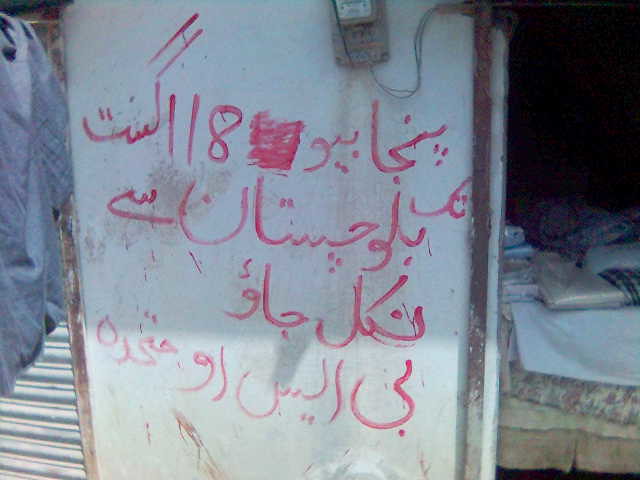 پنجابیو 18 اگست
تک بلوچستان سے
نکل جاؤ
بی ایس او متحدہ